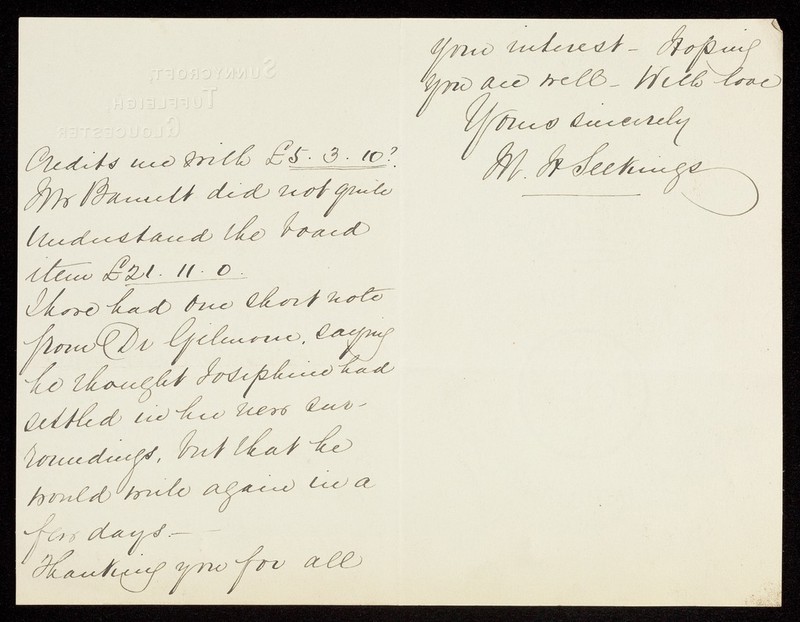 SUNNYCROFT,
TUFFLEIGH,
GLOUCESTER
Credits me with £5. 3. 10?.
Mr Barnett did not quite
understand the board
item £21. 11. 0.
I have had one short note
from Dr Gilmour, saying
he thought Josephine had
settled in her new sur-
roundings, but that he
would write again in a
few days —
Thanking you for all
your interest — Hoping
you are well — With love
Yours sincerely
M. H Seekings